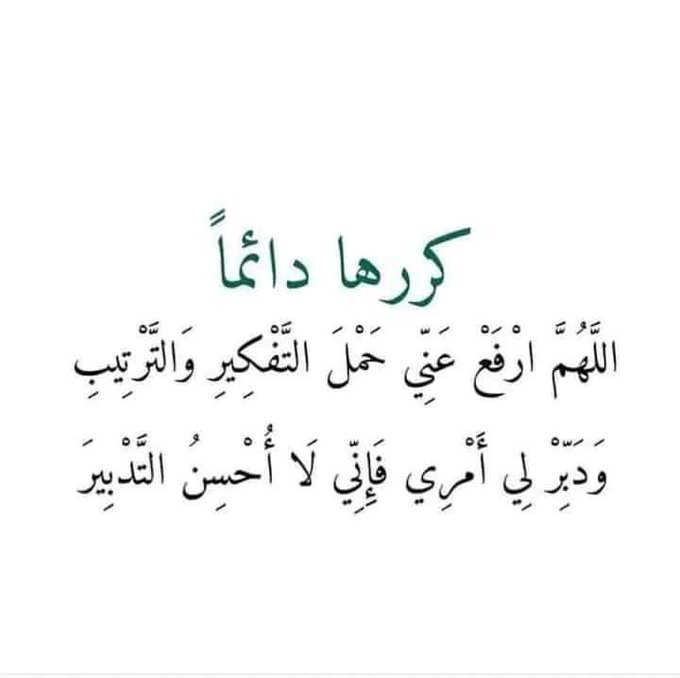 كررها دائماً
اللَّهُمَّ ارْفَعْ عَنِّي حَمْلَ التَّفْكِيرِ وَالتَّرْتِيبِ
وَدَبِّرْ لِي أَمْرِي فَإِنِّي لَا أُحْسِنُ التَّدْبِيرَ